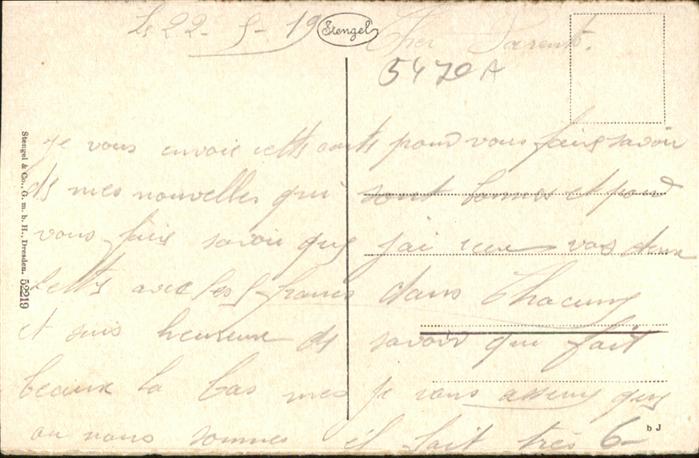 Le 22-5-19 Stengel Cher Parents.
5472A
je vous envoie cette carte pour vous faire savoir
de mes nouvelles qui sont bonnes et pour
vous faire savoir que j'ai reçu vos deux
lettre avec les 5 francs dans chacune
et suis heureux de savoir qui fait
beaux la bas mes je vous assure que
ou nous sommes il fait très
Stengel & Co., G. m. b. H., Dresden. 52219
b J